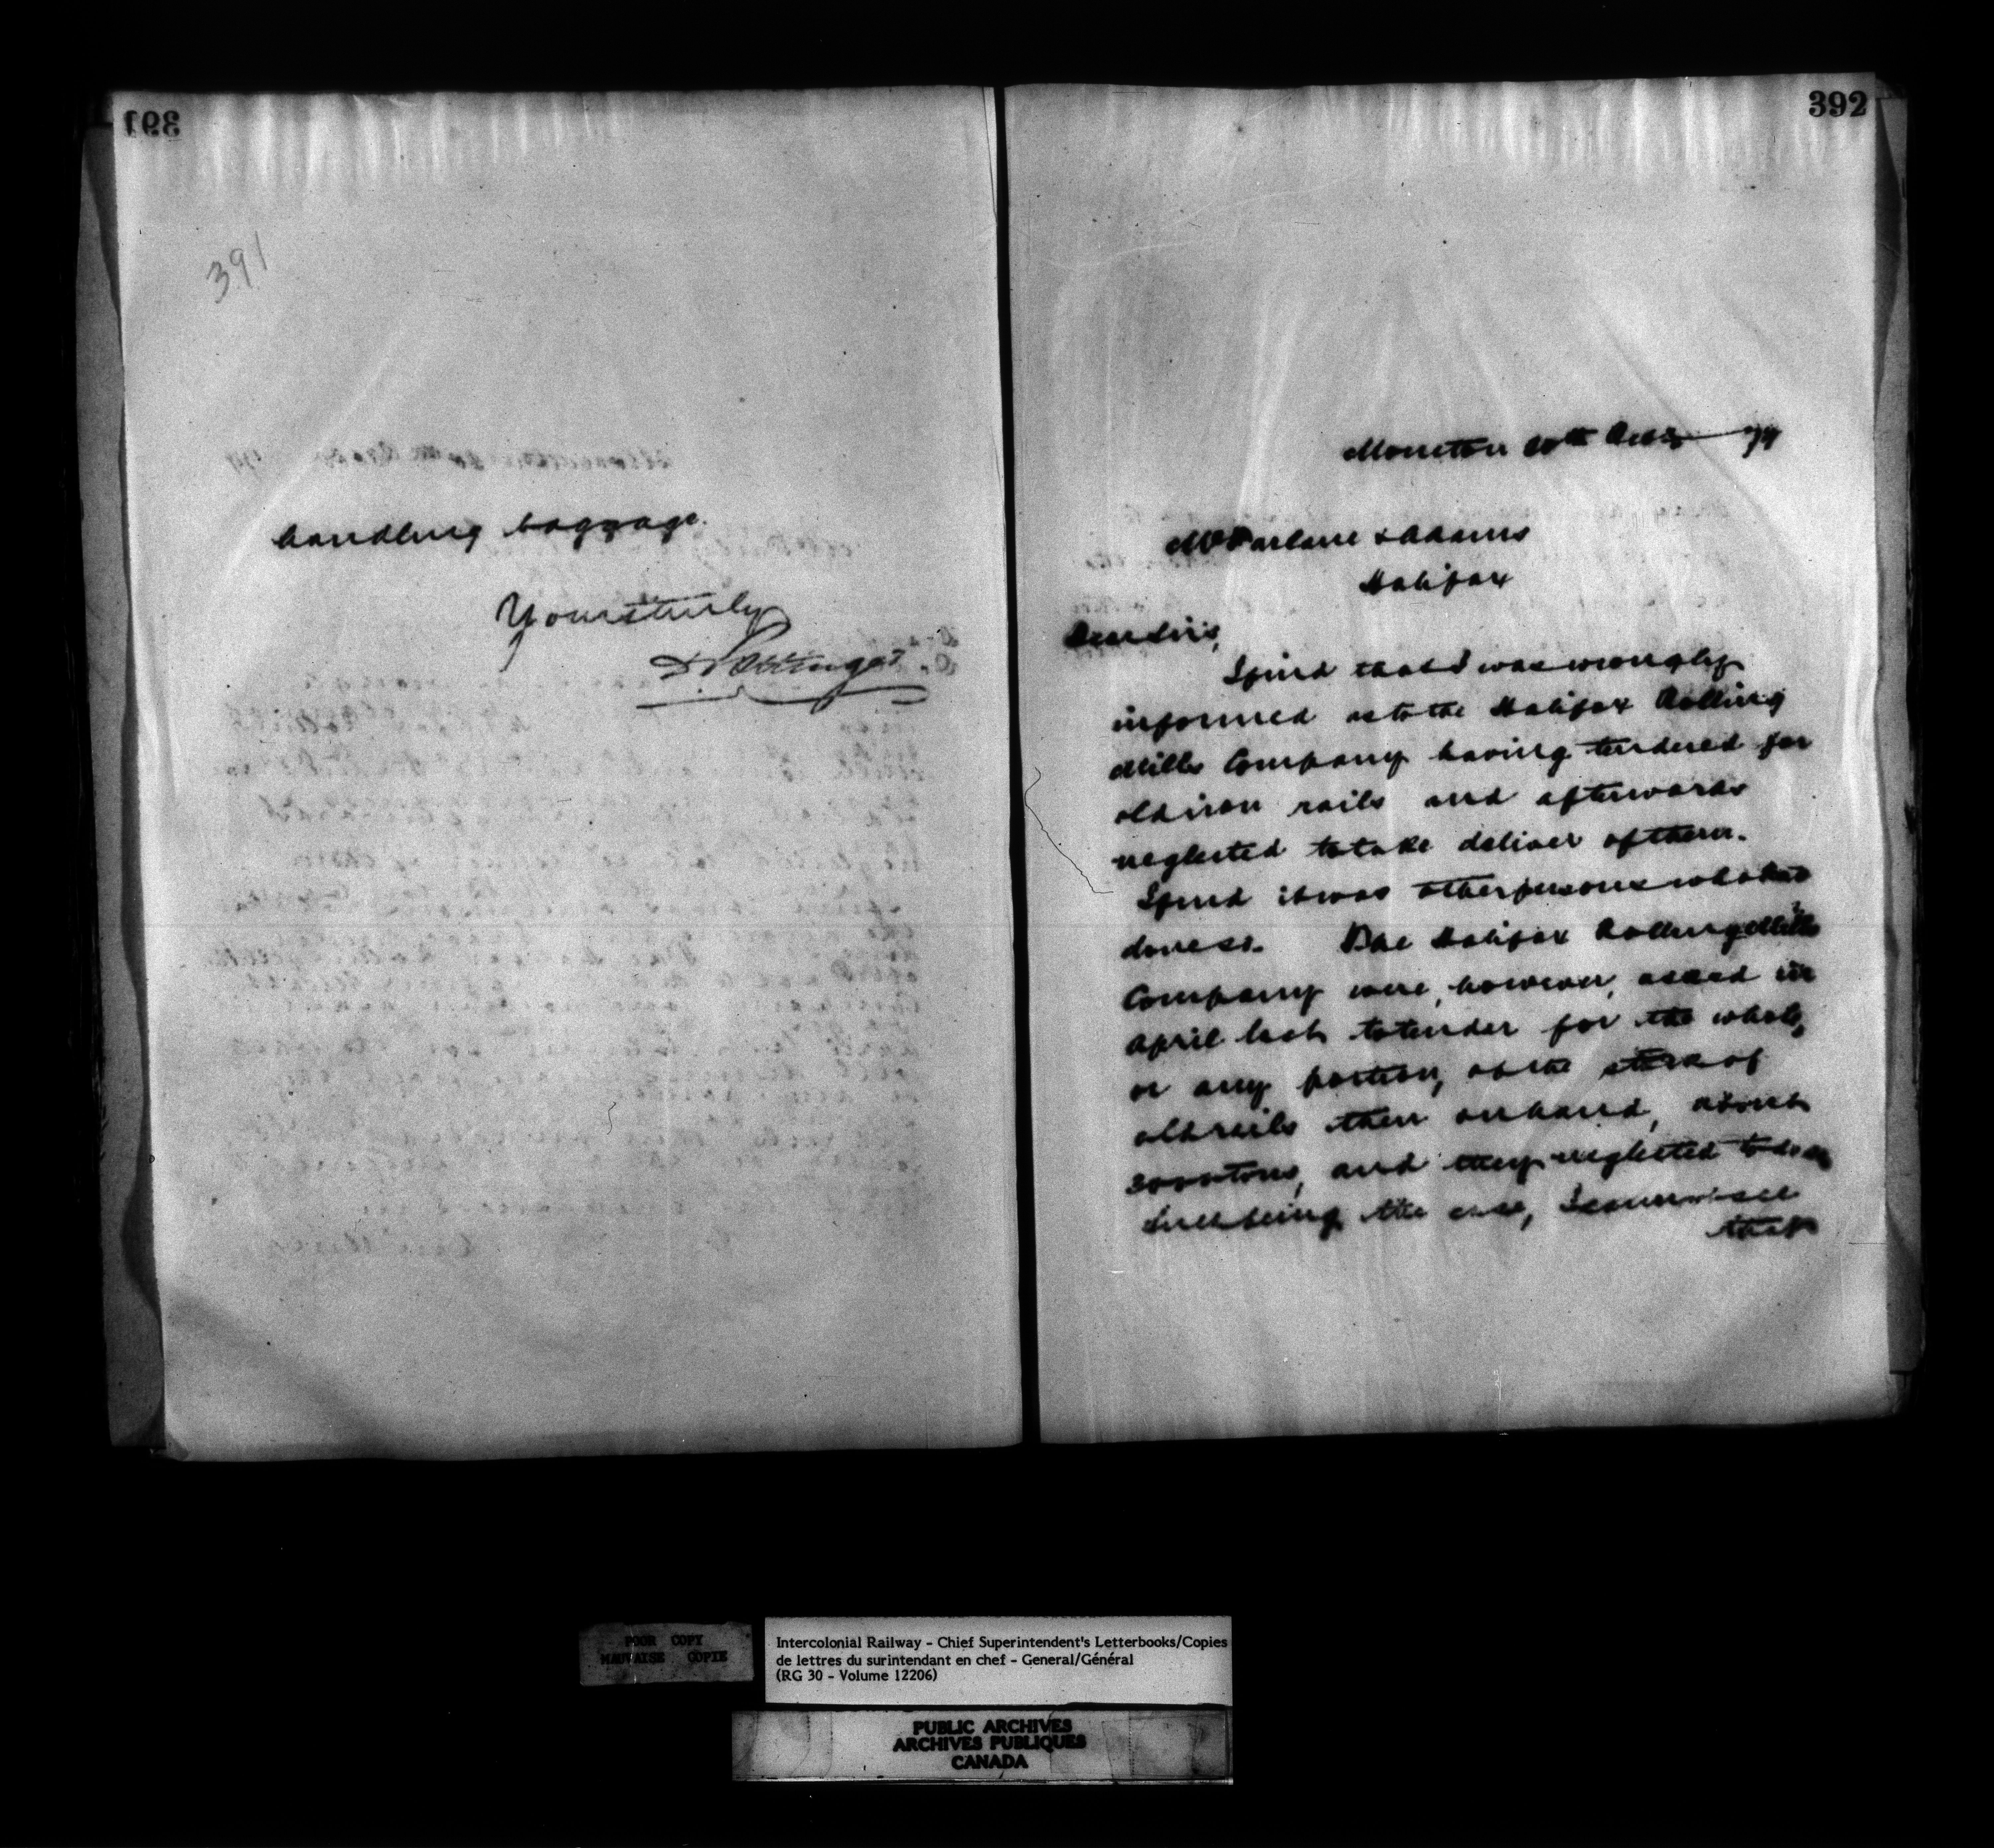 391
391
handling baggage.
Yours truly
D Pottinger
392
Moncton 20th Decr 79
McFarlane & Adams
Halifax
Dear Sirs,
I find that I was wrongly
informed as to the Halifax Rolling
Mills Company having tendered for
old iron rails and afterwards
neglected to take deliver of them.
I find it was other persons who had
done so. The Halifax Rolling Mills
Company were, however, asked in
April last to tender for the whole,
or any portion, of the stock of
old rails then on hand, about
3000 tons, and they neglected to do so
Such being the case, I cannot see
that
POOR COPY
MAUVAISE COPIE
Intercolonial Railway - Chief Superintendent's Letterbooks/Copies
de lettres du surintendant en chef - General/Général
(RG 30 - Volume 12206)
PUBLIC ARCHIVES
ARCHIVES PUBLIQUES
CANADA